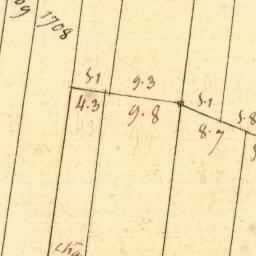 1708
5.1 9.3 5.1 5.8
4.3 9.8 8.7